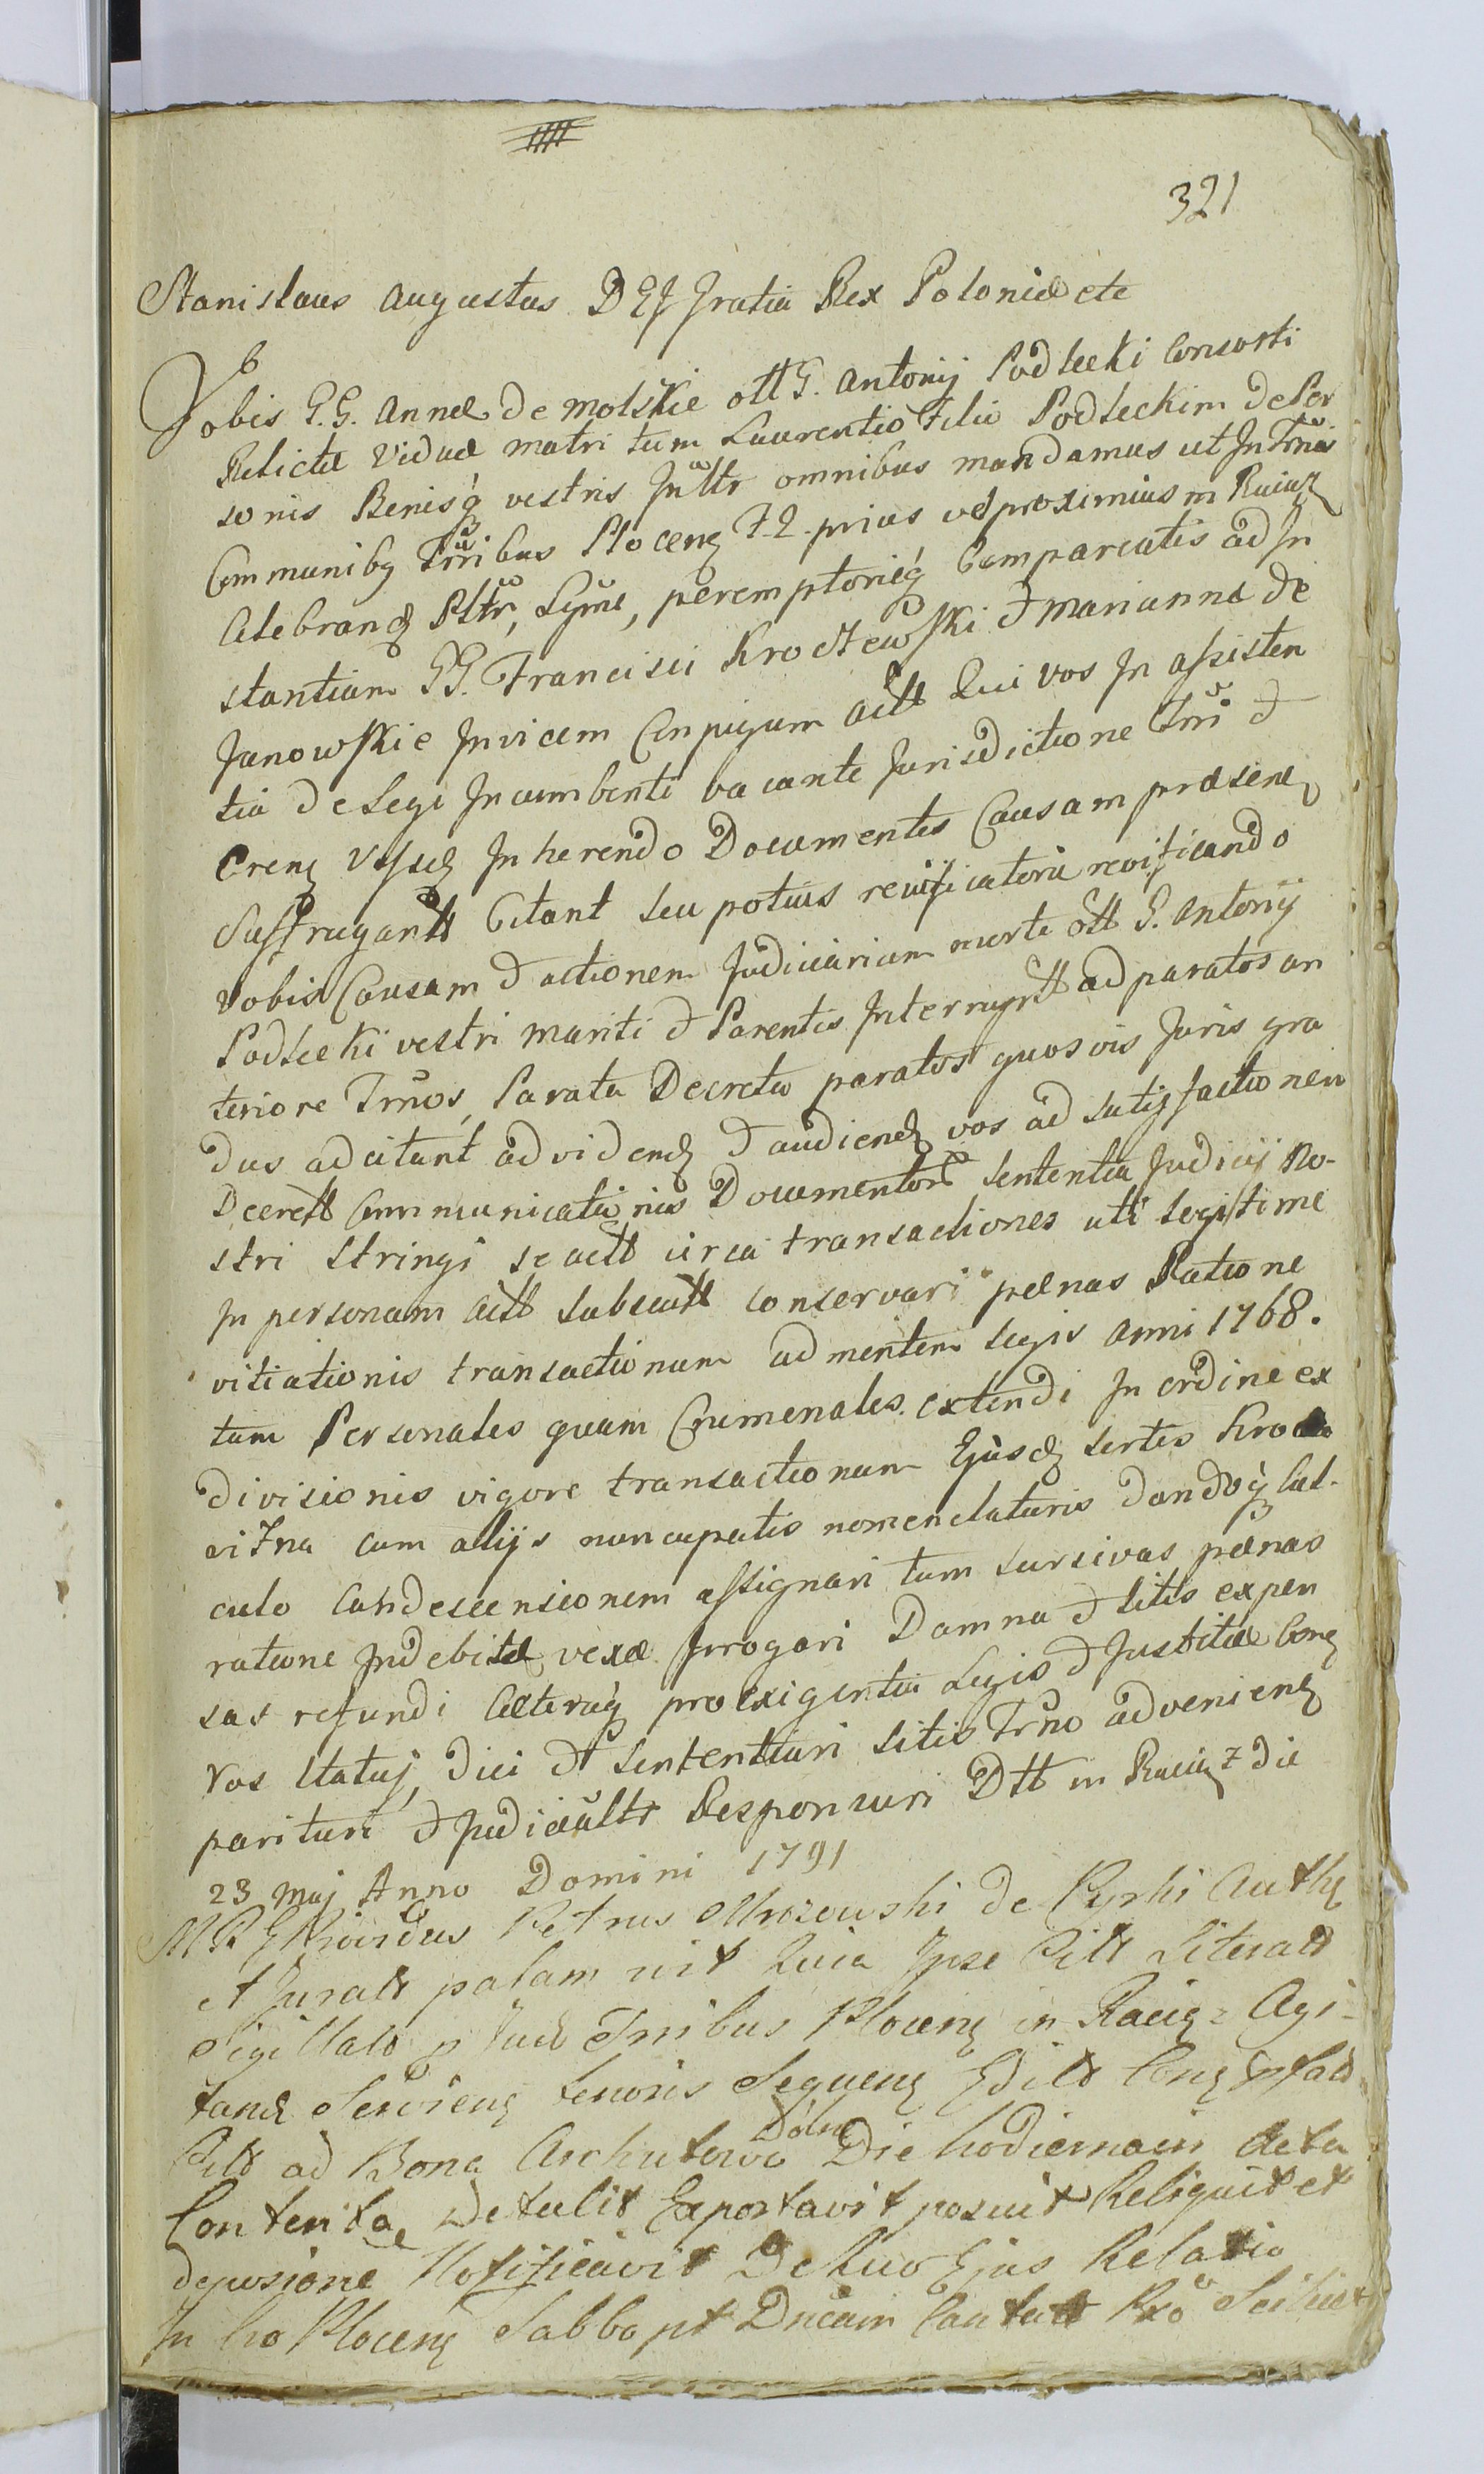 321
Stanislaus Augustus DEJ Gratia Rex Poloniæ etc
Vobis G.G. Annæ de Molskie ott G. Antonij Podlecki Consorti
Relictæ Viduæ matri tum Laurentio Filio Podleckim de Per
sonis Benisq vestris omnibus mandamus ut In Trnis
Communibq Trribus Plocenz F.2. prius vel proximius in Raciąz
Celebrand Pltr, Lyme, peremptorieq Compareatis ad In
stantiam GG. Francisci Kroczewski & Marianna de
Janowskie Invicem Conjugum actt Qui vos In assisten
tia de Lege Incumbenti vacante Jurisdictione Trri &
Inherendo Documentis Causam præsenz
Suffragantt Citant seu potius reificatoria reificando
vobis Causam & actionem Judiciariam morte ott G. Antonij
Podlecki vestri mariti & Parentis Interruptt ad paratos an
teriore Trnos, Parata Decreta paratos quosvis Juris gra
dus adcitant ad videndz & audiendz vos ad satisfactionem
Decrett Communicationis Documentor sententia Judicij No-
stri stringi se actt circa transactiones uti legitime
In personam actt subseqtt conservari pænas Ratione
vitiationis transactionum ad mentem legis anni 1768.
tam Personales quam Crumenales extendi In ordine ex
divisionis vigore transactionum Ejusdz sortis Kro
cizna cum alijs nuncupatis nomenclaturis dandoq Cal-
culo Condescensionem assignari tum sursivas pænas
ratione Indebitæ vexæ Irrogari Damna & litis expen
sas refundi Cæteraq pro exigentia Legis & Justitiæ Conz
Vos Statuj, dici & sententiari Sitis Trno advenienz
parituri & Judicialtr Responsuri Dtt in Raciąz die
23 Maj Anno Domini 1791
Petrus Mrozowski de Pyrki Authz
et Juratt palam rit Quia Ipse Citt Literatt
Sigillatt p Judz Trribus Plocenz in Raciąz Agi-
tandz Servienz tenoris Sequenz Editt Conz
Dolne
Citt ad Bona Archutowo Die hodierna in data
Contenta Detulit Exportavit posuit Reliquit et
deposicione Notificavit De Quo Ejus Relatio
In Cro Plocenz Sabbo pt Dncam Cantatt Scilicet